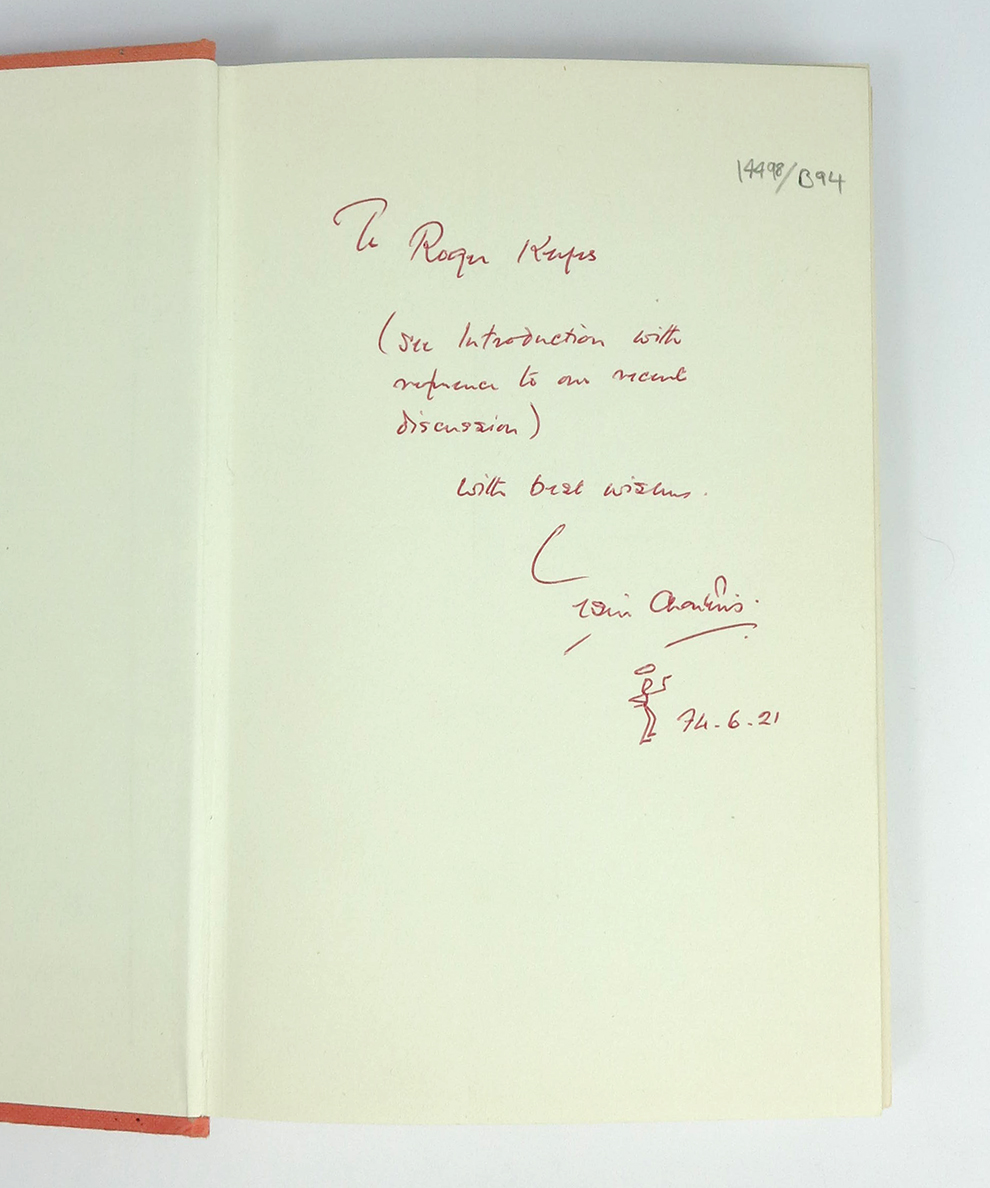 14498/B94
To Roger Keyes
(see Introduction with
reference to our recent
discussion)
with best wishes.
74-6-21